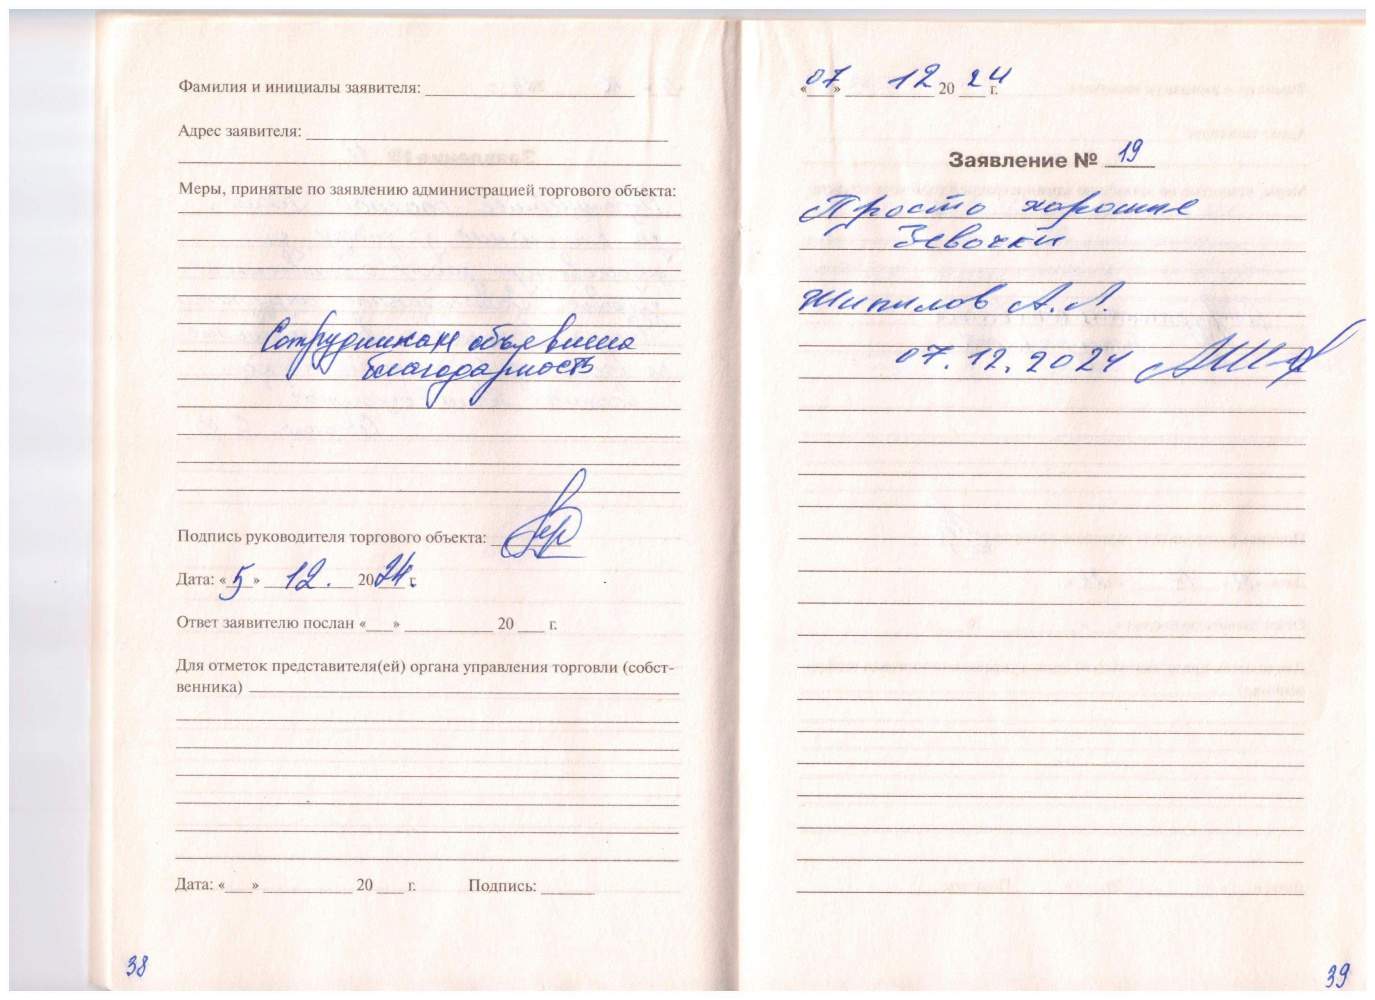 Фамилия и инициалы заявителя:
Адрес заявителя:
Меры, принятые по заявлению администрацией торгового объекта:
Сотрудникам объявлена
благодарность
Подпись руководителя торгового объекта:
Дата: «5» 12. 2024 г.
Ответ заявителю послан «___» __________ 20 ___ г.
Для отметок представителя(ей) органа управления торговли (собст-
венника)
Дата: «___» __________ 20 ___ г. Подпись: ______
38
«07» 12 2024 г.
Заявление № 19
Просто хорошие
Девочки
Шипилов А.Л.
07.12.2024
39